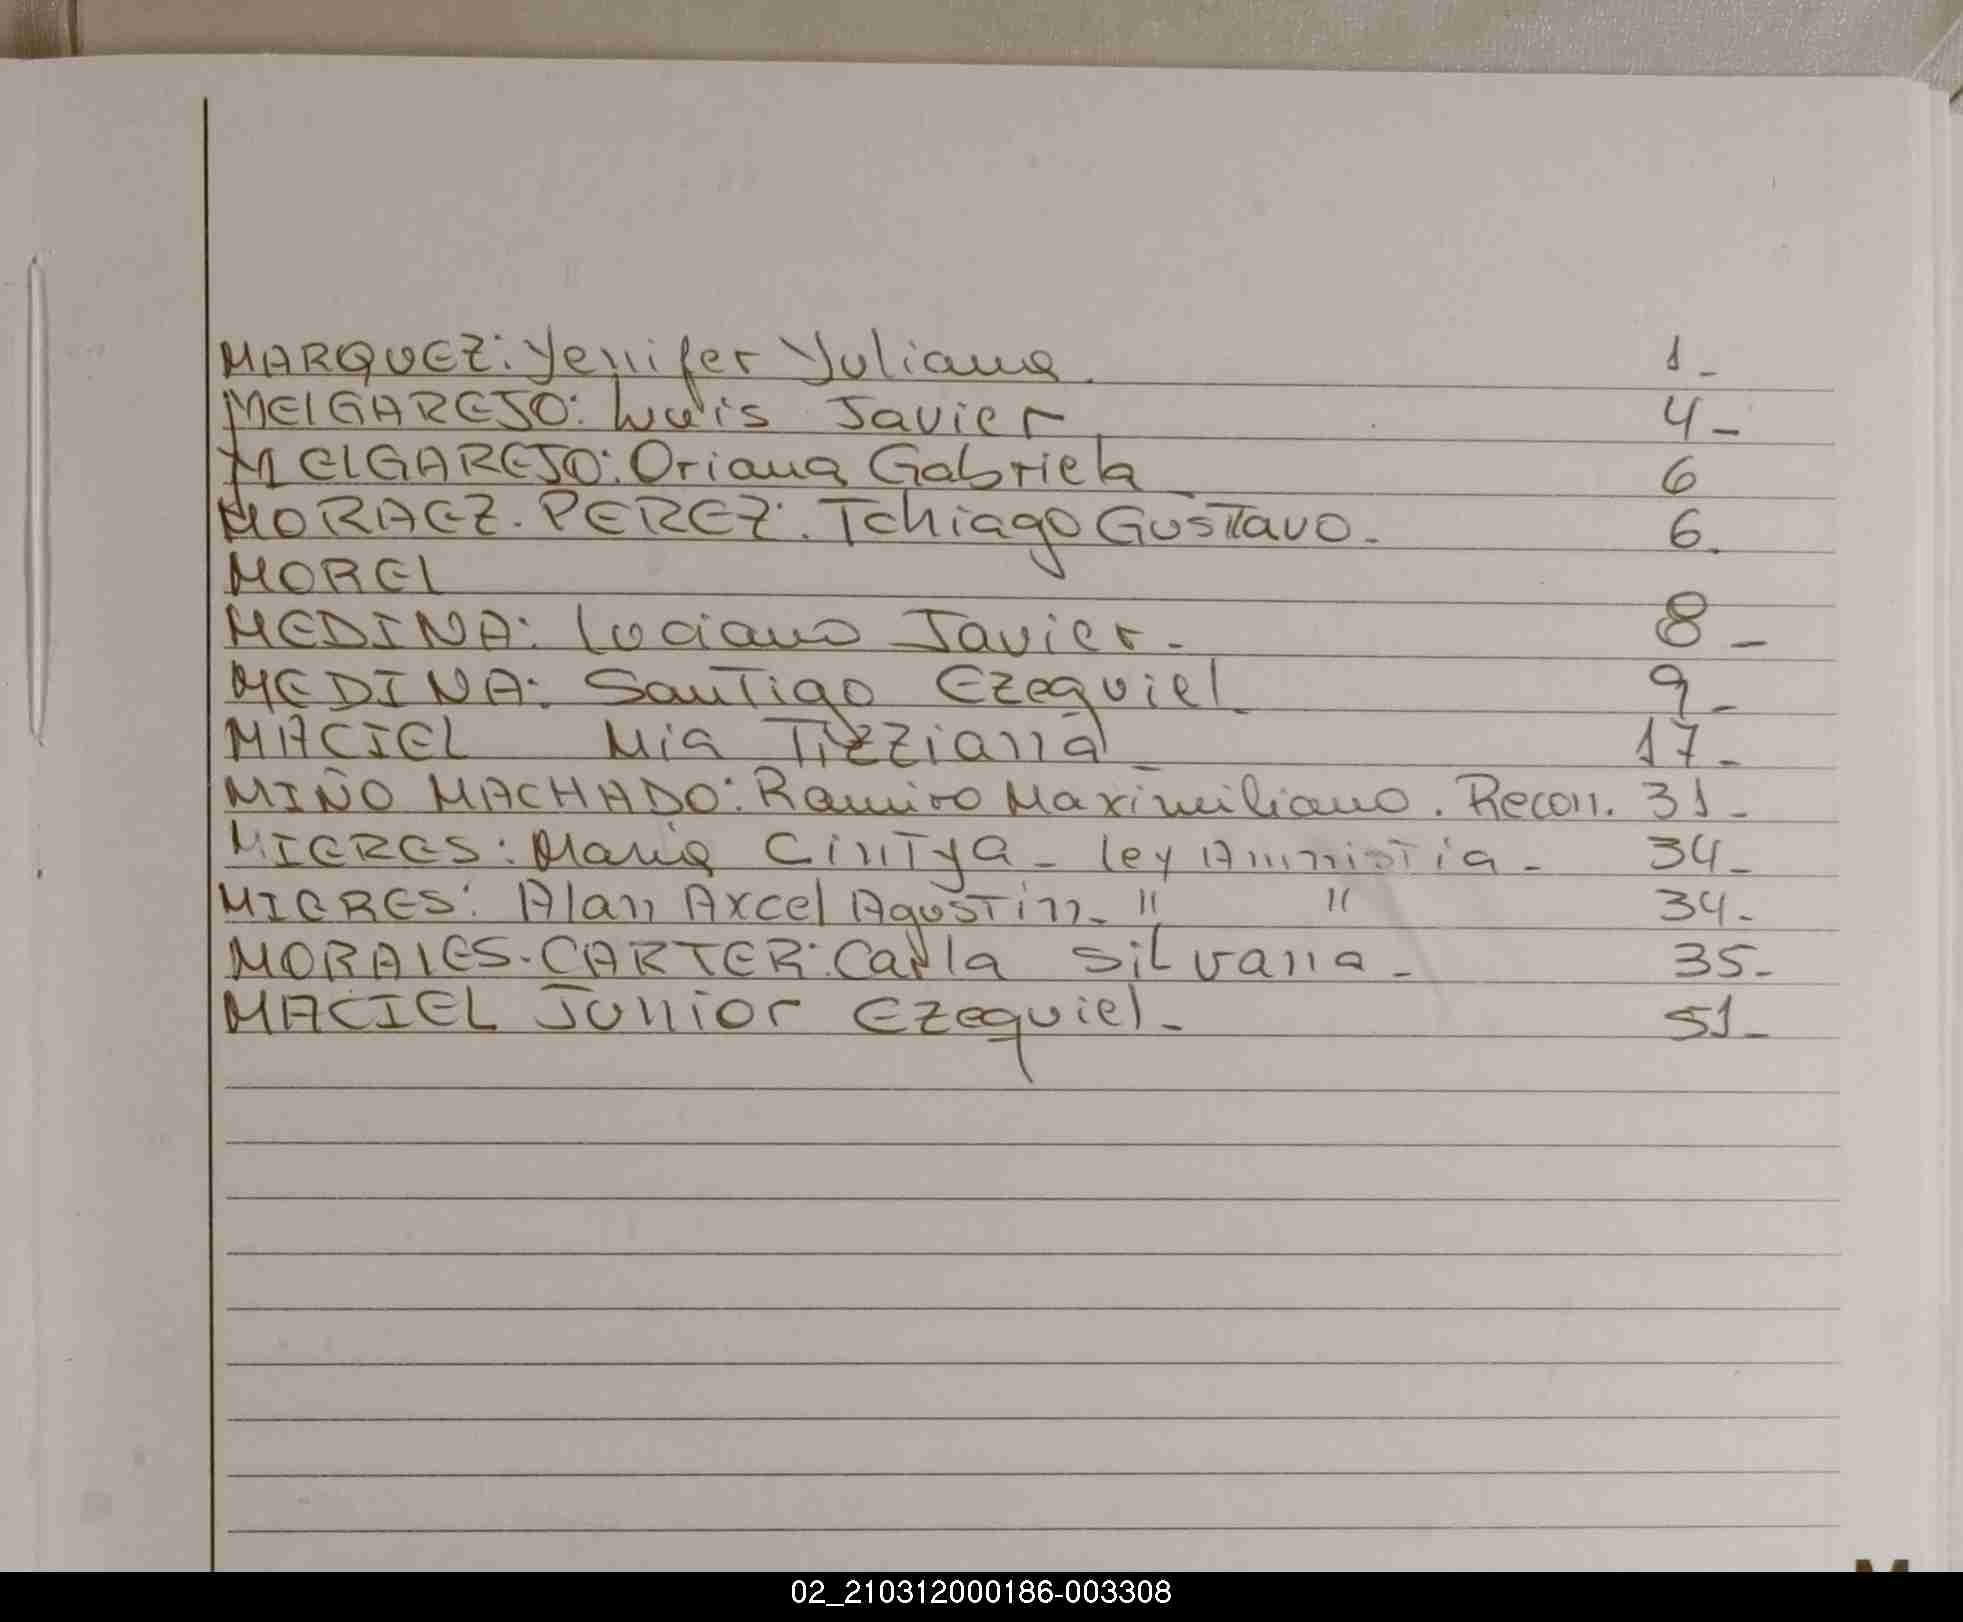 MARQUEZ: Yenifer Yuliana. 1-
MELGAREJO: Luis Javier. 4-
MELGAREJO: Oriana Gabriela 6
MORAEZ. PEREZ: Tchiago Gustavo. 6.
MOREL
MEDINA: Luciano Javier. 8-
MEDINA: Santigo Ezequiel 9-
MACIEL Mia Tizziana 17-
MIÑO MACHADO: Ramiro Maximiliano. Recon. 31-
MIERES: Maria Cintya - ley Amnistia - 34-
MIERES: Alan Axcel Agustin. " " 34-
MORALES. CARTER: Carla Silvana - 35-
MACIEL Junior Ezequiel - 51-
M
02_210312000186-003308